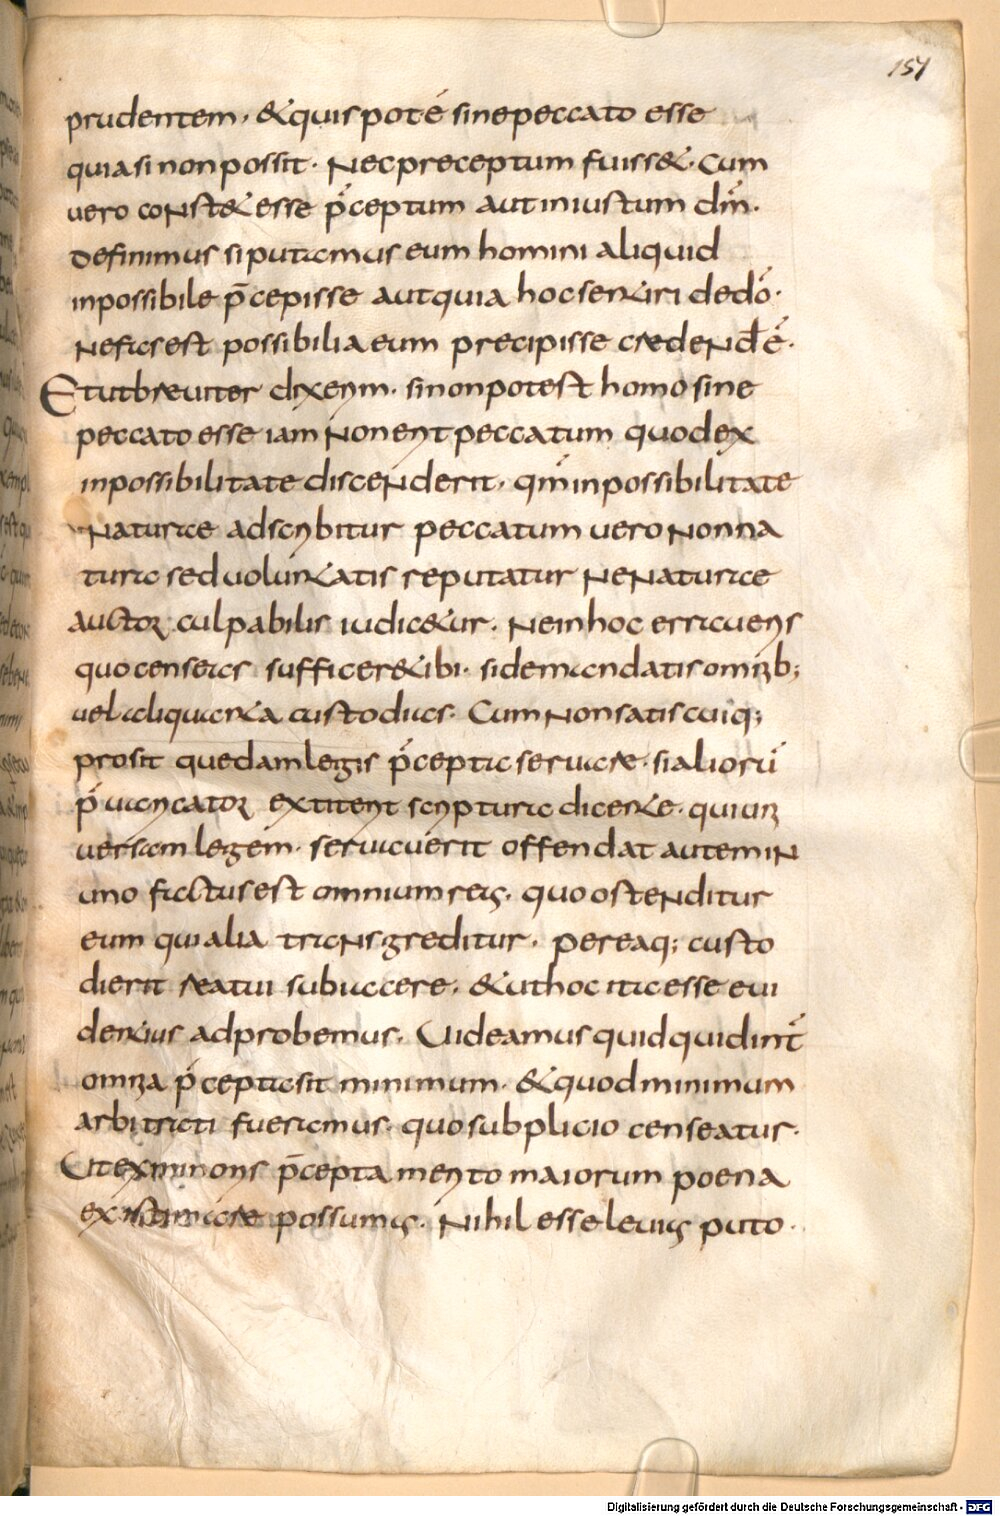 157
prudentem, & quis poté sine peccato esse
quia si non possit. Nec preceptum fuiss&. Cum
vero const& esse p̄ceptum aut iniustum dm̄.
definimus si putamus eum homini aliquid
inpossibile p̄cepisse aut quia hoc sentiri de dō.
Nefas est possibilia eum precipisse credendē.
Et ut breviter dixerim. si non potest homo sine
peccato esse iam non erit peccatum quod ex
inpossibilitate discenderit, qm̄ inpossibilitate
naturae adscribitur peccatum vero non na
turae sed voluntatis reputatur ne naturae
auctor culpabilis iudic&ur. Ne in hoc erraueris
quo censeas suffic&er& ibi. si de mandatis omib;
uel aliquanta custodias. Cum non satis cuiq;
prosit quedam legis p̄cepta seruare. si aliorū
p̄uaricator extiterit scriptura dicente. qui uni
uersam legem. seruauerit offendat autem in
uno factus est omnium reus. quo ostenditur
eum qui alia transgreditur. per eaq; custo
dierit reatui subiacere. & ut hoc ita esse eui
dentius adprobemus. Uideamus quid quid int̄
omnia p̄cepta sit minimum. & quod minimum
arbitrati fueramus. quo subplicio censeatur.
Ut ex minoris p̄cepta merito maiorum poena
existimare possumus. Nihil esse leuius puto.
Digitalisierung gefördert durch die Deutsche Forschungsgemeinschaft - DFG